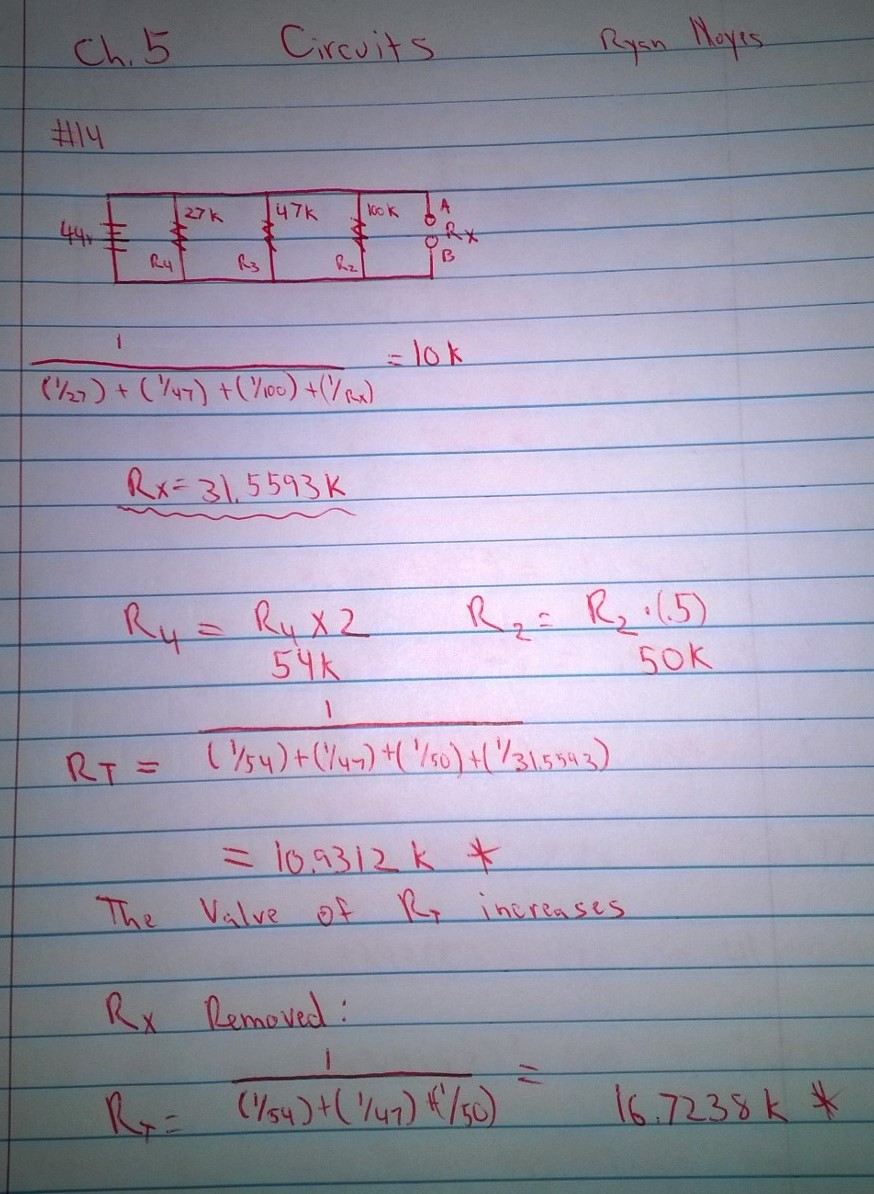 Ch. 5 Circuits Ryan Noyes
#14
44v 27K 47K 100K A
Rx
R4 R3 R2 B
1
(1/27) + (1/47) + (1/100) + (1/Rx) = 10K
Rx = 31.5593K
R4 = R4 X 2 R2 = R2 · (.5)
54K 50K
1
RT = (1/54) + (1/47) + (1/50) + (1/31.5593)
= 10.9312 K *
The Value of RT increases
Rx Removed:
1
RT = (1/54) + (1/47) + (1/50) = 16.7238 K *